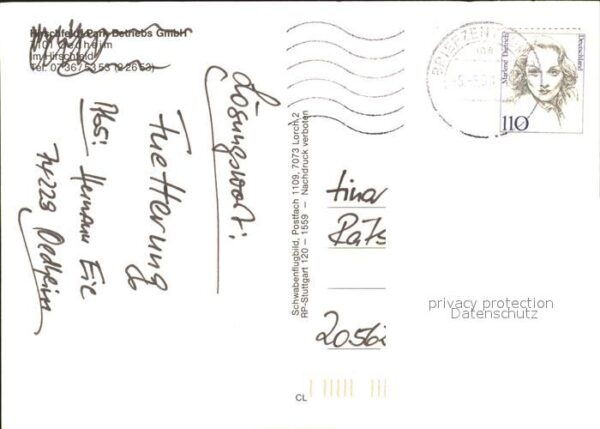 Hirschfeld-Park Betriebs GmbH
7101 Oedheim
Im Hirschfeld
Tel. 0 7136/53 53 (2 26 53)
Lösungswort:
Fuetterung
Abs: Hermann
74229 Oedheim
Schwabenflugbild, Postfach 1109, 7073 Lorch 2
RP-Stuttgart 120 – 1559 – Nachdruck verboten
CL
BRIEFZEN
Marlene Dietrich
Deutschland
110
tina
Rats
20562
privacy protection
Datenschutz